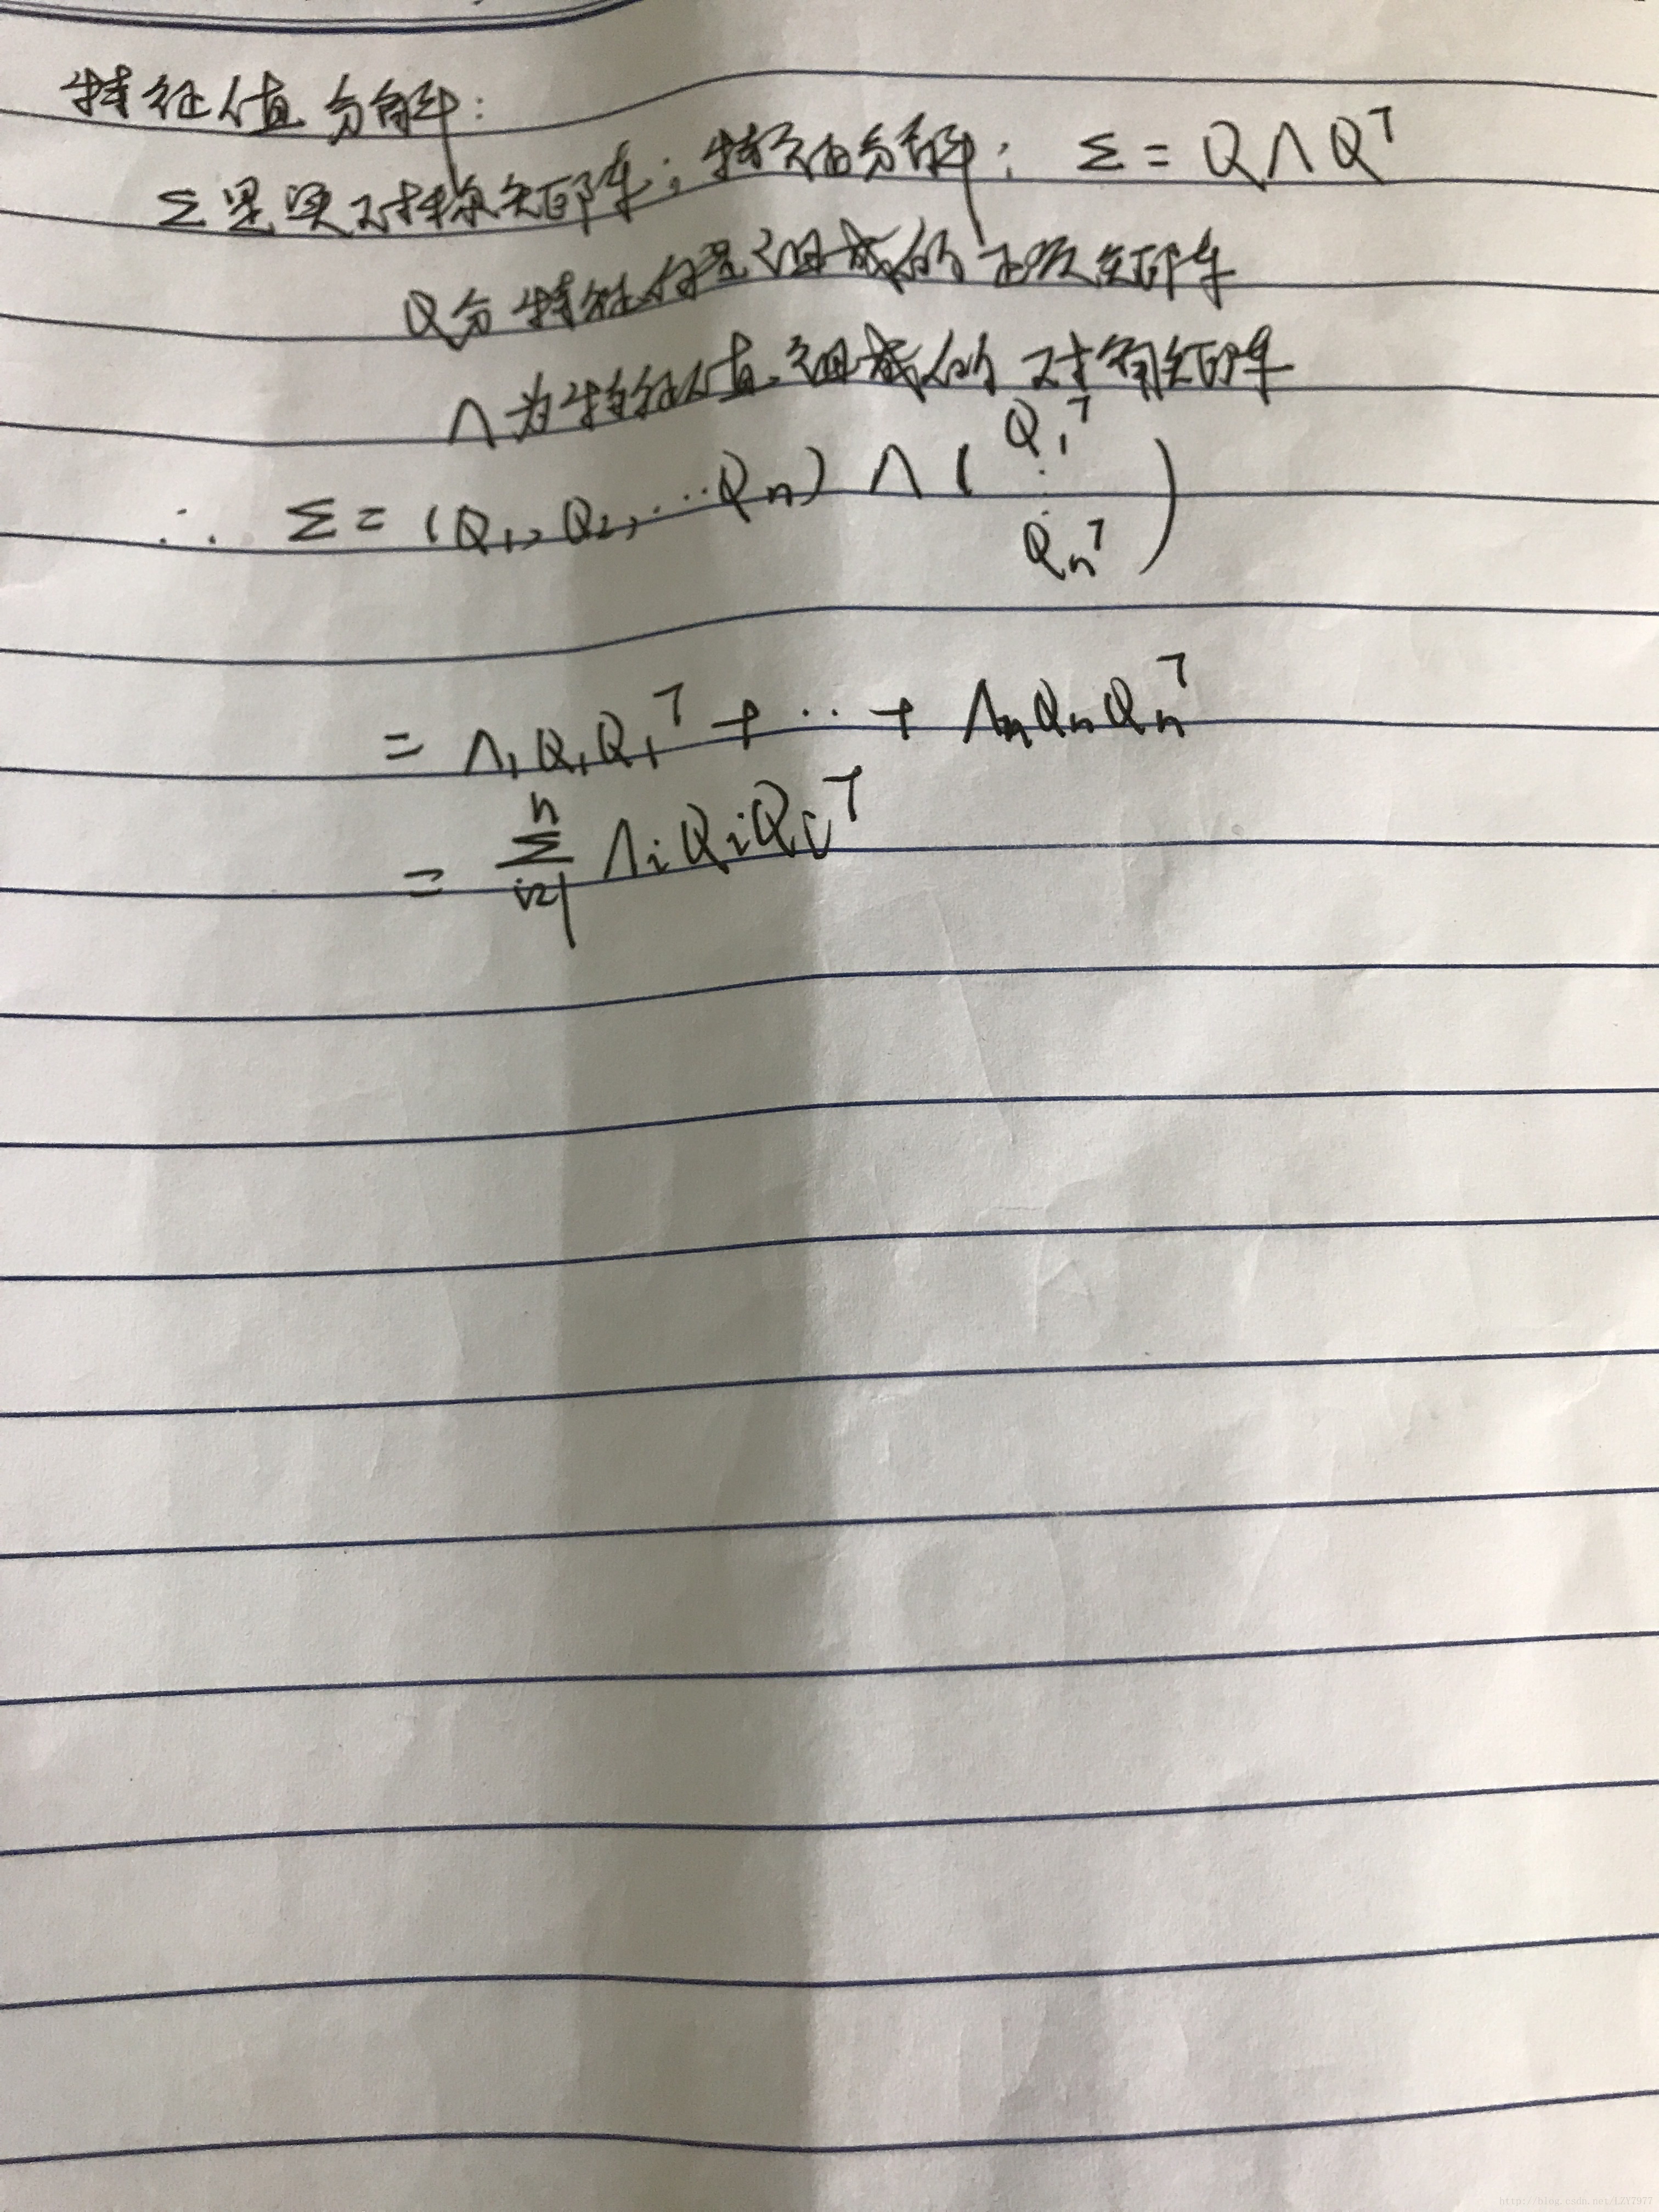 特征值分解:
Σ是实对称矩阵; 特征值分解: Σ = QΛQ^T
Q为特征向量组成的正交矩阵
Λ为特征值组成的对角矩阵
∴ Σ = (Q₁, Q₂, …Qn) Λ ( Q₁^T ⋮ Qn^T )
= Λ₁Q₁Q₁^T + ‥ + ΛnQnQn^T
= Σ_{i=1}^{n} ΛiQiQi^T
http://blog.csdn.net/LZY7977